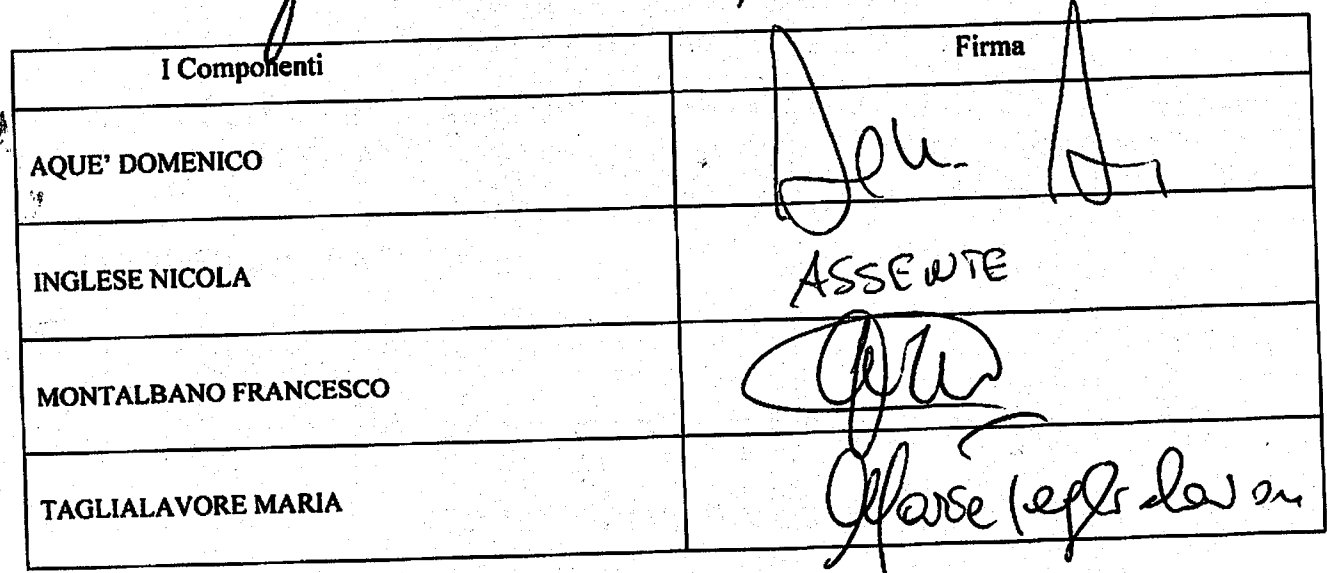 I Componenti Firma
AQUE' DOMENICO
INGLESE NICOLA ASSENTE
MONTALBANO FRANCESCO
TAGLIALAVORE MARIA Maria Taglialavore